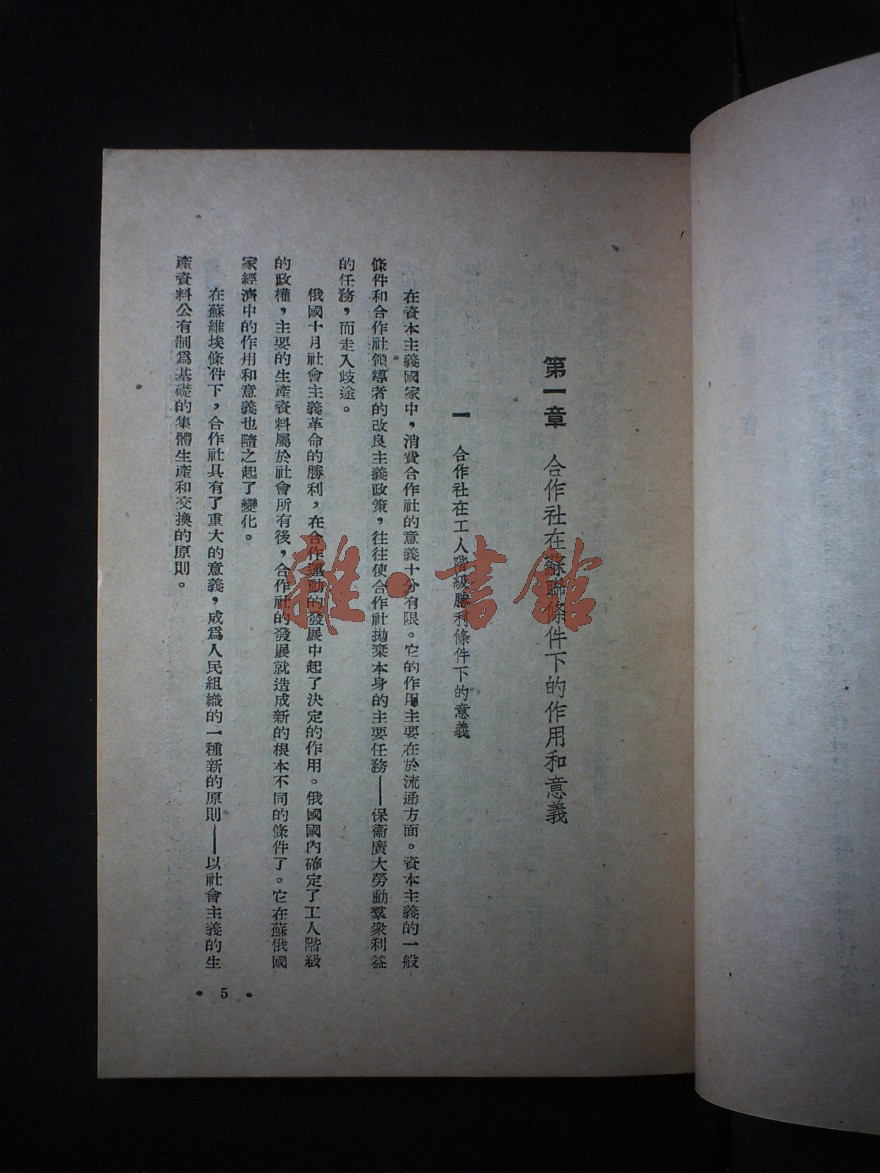 第一章　合作社在蘇聯條件下的作用和意義
一　合作社在工人階級勝利條件下的意義
在資本主義國家中，消費合作社的意義十分有限。它的作用主要在於流通方面。資本主義的一般
條件和合作社領導者的改良主義政策，往往使合作社拋棄本身的主要任務——保衞廣大勞動羣衆利益
的任務，而走入歧途。
俄國十月社會主義革命的勝利，在合作運動的發展中起了決定的作用。俄國國內確定了工人階級
的政權，主要的生產資料屬於社會所有後，合作社的發展就造成新的根本不同的條件了。它在蘇俄國
家經濟中的作用和意義也隨之起了變化。
在蘇維埃條件下，合作社具有了重大的意義，成爲人民組織的一種新的原則——以社會主義的生
產資料公有制爲基礎的集體生產和交換的原則。
• 5 •
雜·書館